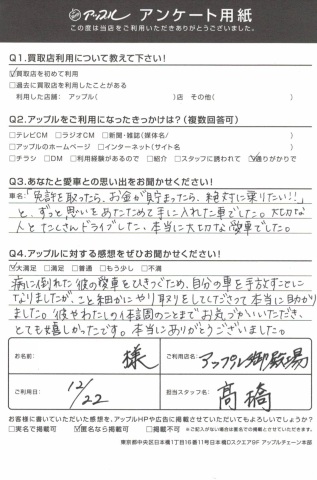 アップル アンケート用紙
この度は当店をご利用いただきありがとうございました。
Q1.買取店利用について教えて下さい!
☑買取店を初めて利用
□過去に買取店を利用したことがある
利用した店舗: アップル( )店 その他( )
Q2.アップルをご利用になったきっかけは?(複数回答可)
□テレビCM □ラジオCM □新聞・雑誌(媒体名/ )
□アップルのホームページ □インターネット(サイト名 )
□チラシ □DM □利用経験があるので □紹介 □スタッフに誘われて ☑通りがかりで
Q3.あなたと愛車との思い出をお聞かせください!
車名:「免許を取ったら、お金が貯まったら、絶対に乗りたい!!」
と、ずっと思いをあたためて手に入れた車でした。大切な
人とたくさんドライブした、本当に大切な愛車でした。
Q4.アップルに対する感想をぜひお聞かせください!
☑大満足 □満足 □普通 □もう少し □不満
病に倒れた彼の愛車をひきつぐため、自分の車を手放すことに
なりましたが、こと細かにやり取りをしてくださって本当に助かり
ました。彼やわたしの体調のことまでお気づかいいただき、
とても嬉しかったです。本当にありがとうございました。
お名前: 様
ご利用店名: アップル御殿場
ご利用日: 12/22
担当スタッフ名: 高橋
お客様に書いていただいた感想を、アップルHPや広告に掲載させていただいてもよろしいでしょうか?
□実名で掲載可 ☑匿名なら掲載可 □掲載不可 ※ご記入がない場合は匿名での掲載とさせていただきます。
東京都中央区日本橋1丁目16番11号日本橋Dスクエア9F アップルチェーン本部